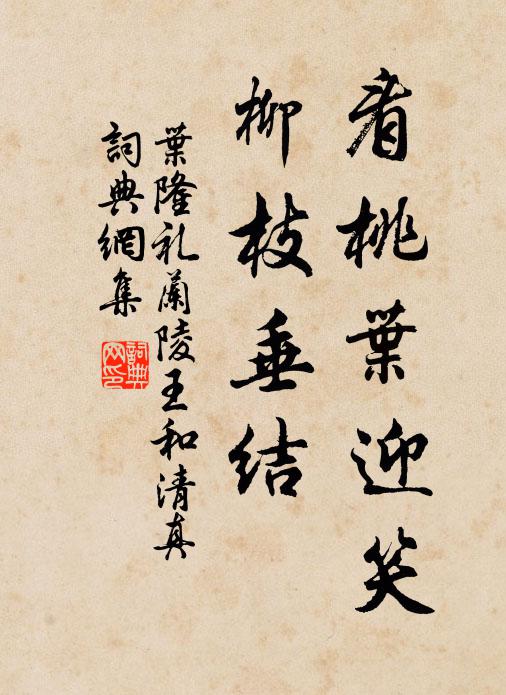 看桃葉迎笑
柳枝垂結
葉隆礼蘭陵王和清真
詞典網集
詞典網印